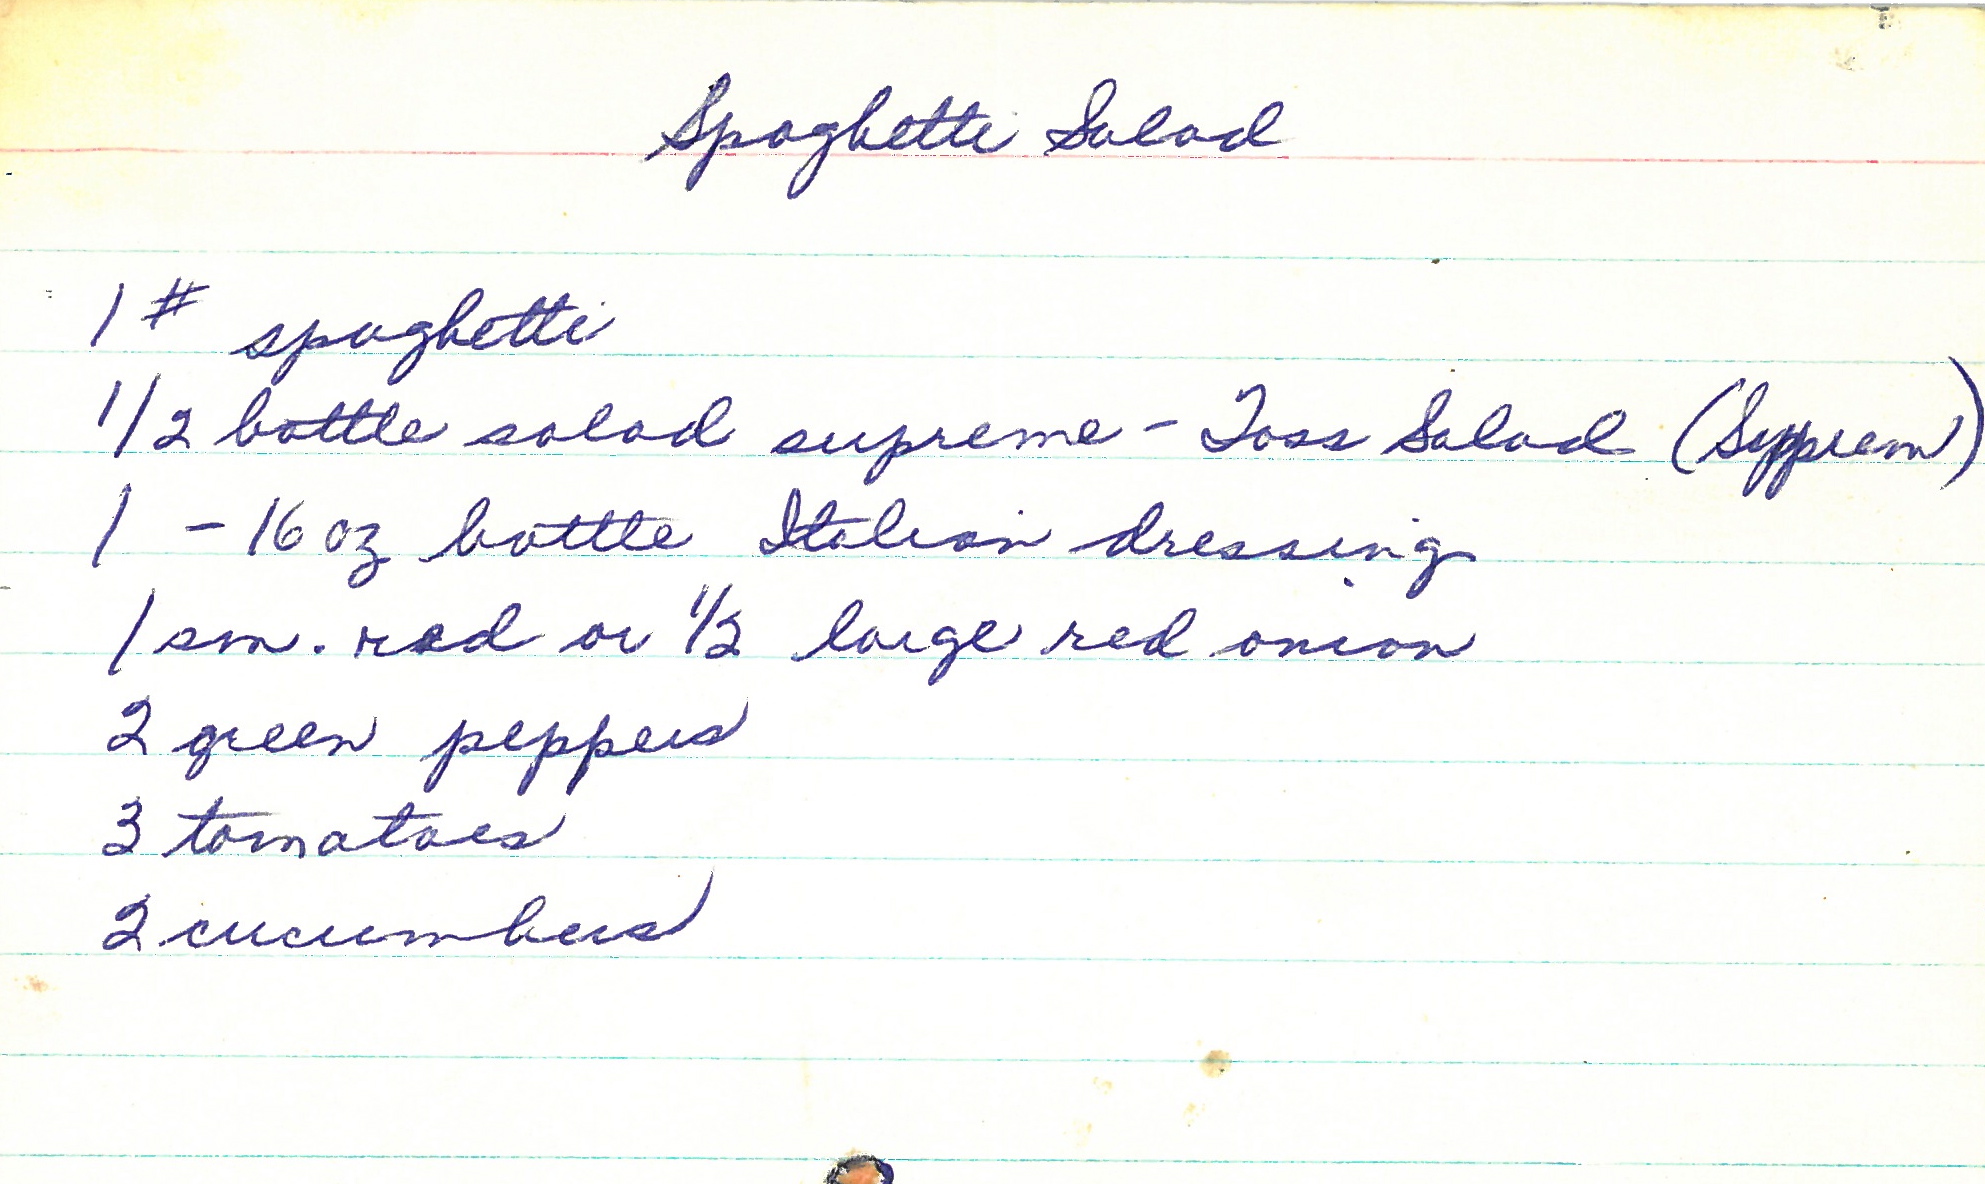 Spaghetti Salad
1 # spaghetti
1/2 bottle salad supreme - Toss Salad (Supprem)
1 - 16 oz bottle Italian dressing
1 sm. red or 1/2 large red onion
2 green peppers
3 tomatoes
2 cucumbers